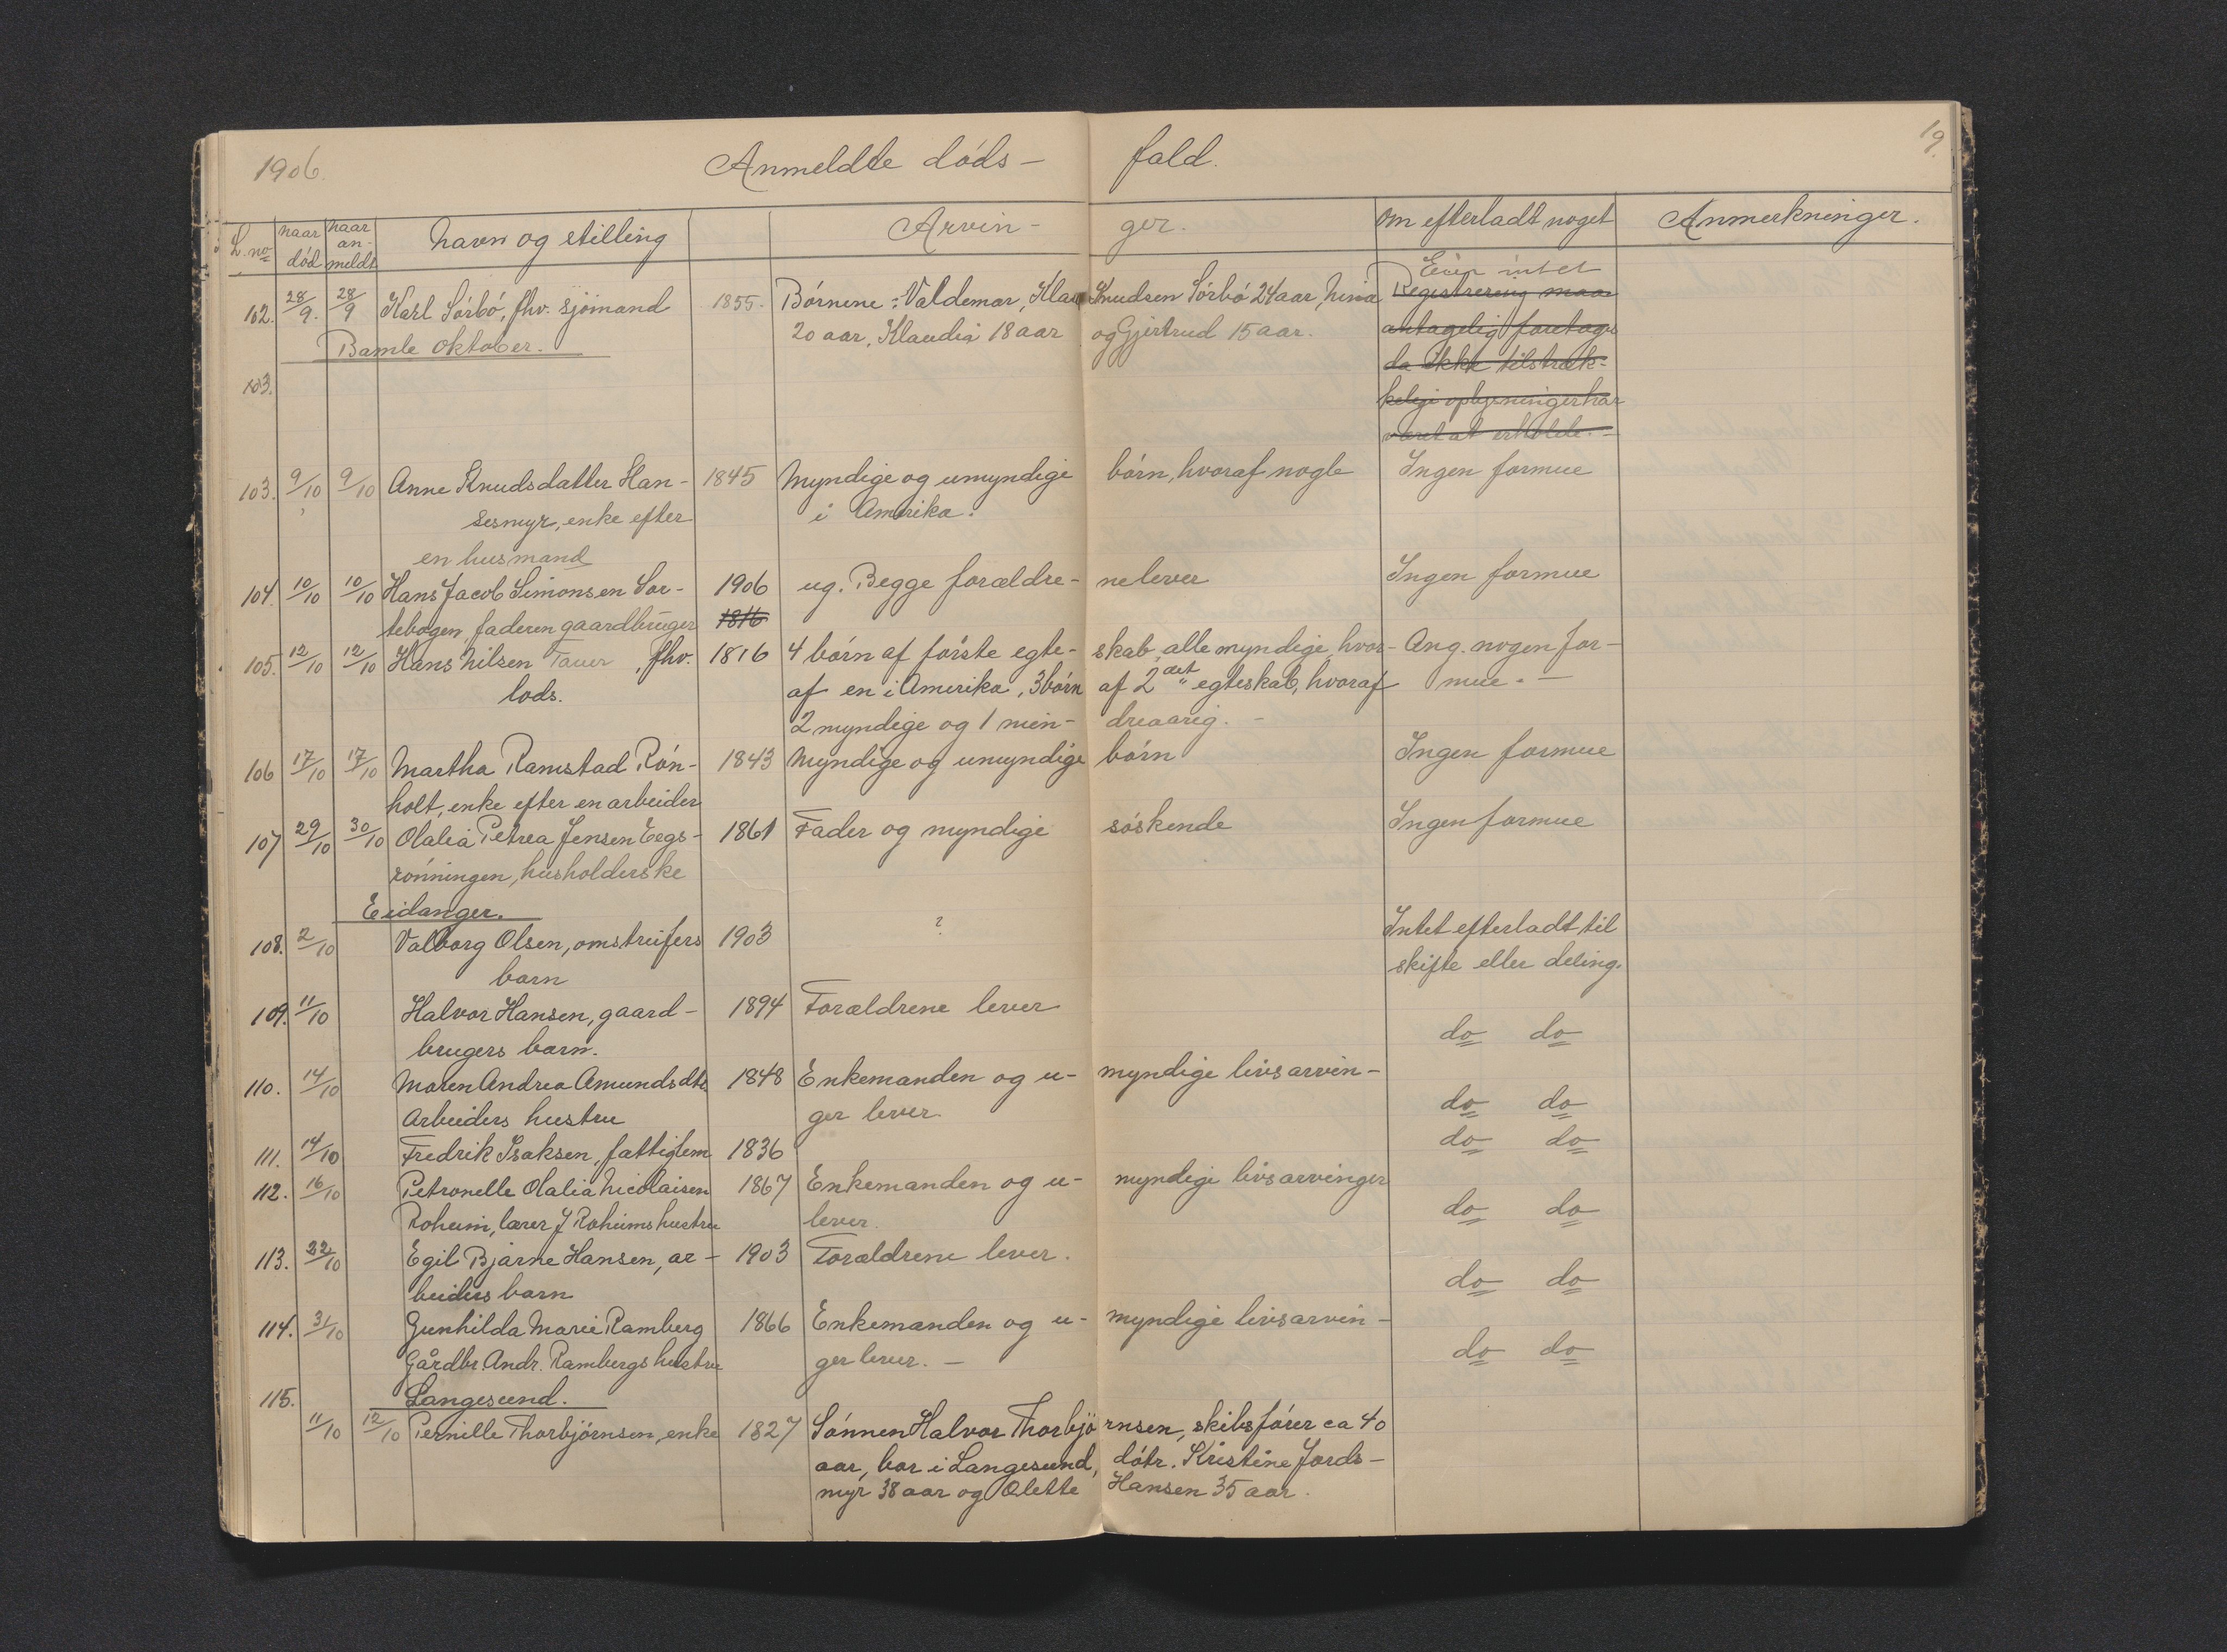 1906. Anmeldte döds- fald. 19.
L. no naar död naar an- meldt navn og stilling Arvin- ger. Om efterladt noget Anmerkninger.
Eier intet
102. 28/9. 28/9 Karl Sörbö, fhv. sjömand 1855. Börnene: Valdemar, Klau Knudsen Sörbö 24 aar, Nina Registrering maa
20 aar, Klaudia 18 aar og Gjertrud 15 aar. antagelig foretages
Bamle oktober.
da ikke tilstræk-
103.
kelige oplysninger har
været at erholde. -
103. 9/10 9/10 Anne Knudsdatter Han- 1845 Myndige og umyndige börn, hvoraf nogle Ingen formue
sesmyr, enke efter i Amerika.
en husmand
104. 10/10 10/10 Hans Jacob Simonsen Sor- 1906 ug. Begge forældre- ne lever Ingen formue
tebogen, faderen gaardbruger 1816
105. 12/10 12/10 Hans Nilsen Tauer, fhv. 1816 4 börn af förste egte- skab, alle myndige, hvor- Ang. nogen for-
lods. af en i Amerika, 3 börn af 2det egteskab, hvoraf mue. -
2 myndige og 1 min- dreaarig. -
106 17/10 17/10 Martha Ramstad Rön- 1843 Myndige og umyndige börn Ingen formue
holt, enke efter en arbeider
107 29/10 30/10 Olalia Petrea Jensen Eegs- 1861 Fader og myndige söskende Ingen formue
rönningen, husholderske
Eidanger.
108. 2/10 Valborg Olsen, omstreifers 1903 ? Intet efterladt til
barn skifte eller deling.
109. 11/10 Halvor Hansen, gaard- 1894 Forældrene lever
brugers barn. do do
110. 14/10 Maren Andrea Amundsdtr 1848 Enkemanden og u- myndige livsarvin-
Arbeiders hustru ger lever do do
111. 14/10 Fredrik Isaksen, fattiglem 1836 do do
112. 16/10 Petronelle Olalia Nicolaisen 1867 Enkemanden og u- myndige livsarvinger
Roheim, lærer J Roheims hustru lever. do do
113. 22/10 Egil Bjarne Hansen, ar- 1903 Forældrene lever.
beiders barn do do
114. 31/10 Gunhilda Marie Ramberg 1866 Enkemanden og u- myndige livsarvin-
Gårdbr. Andr. Rambergs hustru ger lever. - do do
115. Langesund.
11/10 12/10 Pernille Thorbjörnsen, enke 1827 Sönnen Halvor Thorbjö rnsen, skibsförer ca 40
aar, bor i Langesund, dötr. Kristine Jords-
myr 38 aar og Olette Hansen 35 aar.